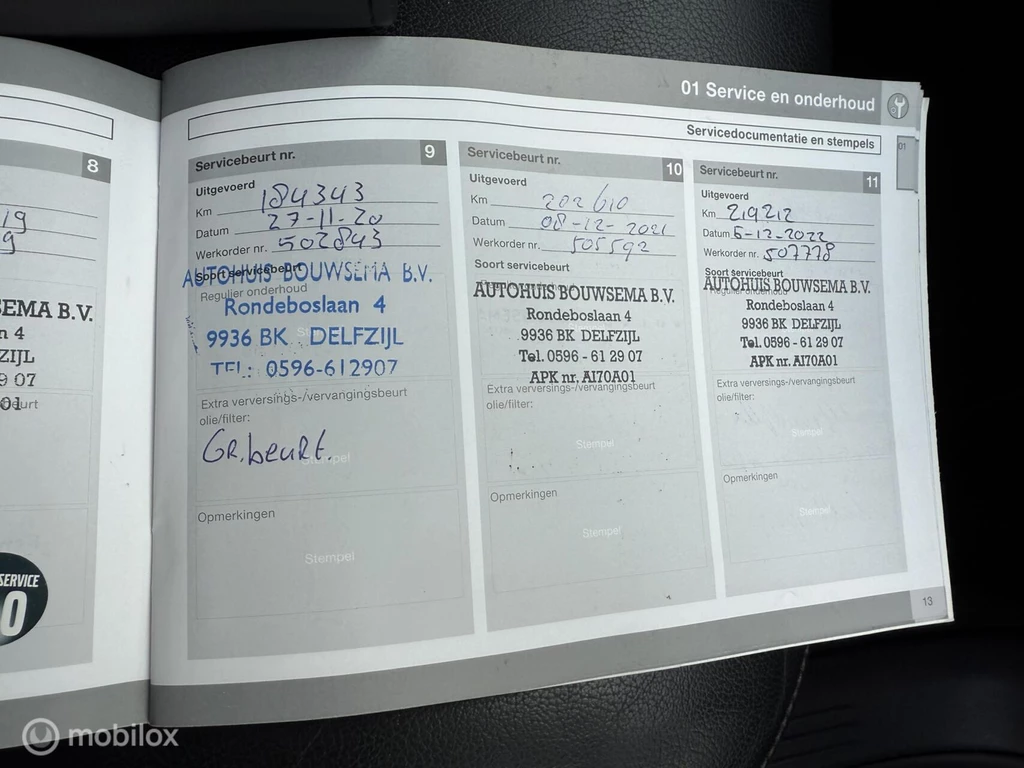 01 Service en onderhoud
Servicedocumentatie en stempels
01
8
19
9
SEMA B.V.
n 4
ZIJL
9 07
01
beurt
SERVICE
0
Servicebeurt nr. 9
Uitgevoerd
Km 184343
Datum 27-11-20
Werkorder nr. 502843
Soort servicebeurt
AUTOHUIS BOUWSEMA B.V.
Regulier onderhoud
Rondeboslaan 4
9936 BK DELFZIJL
TEL.: 0596-612907
Extra verversings-/vervangingsbeurt
olie/filter:
GR.beurt.
Stempel
Opmerkingen
Stempel
Servicebeurt nr. 10
Uitgevoerd
Km 202610
Datum 08-12-2021
Werkorder nr. 505592
Soort servicebeurt
AUTOHUIS BOUWSEMA B.V.
Rondeboslaan 4
9936 BK DELFZIJL
Tel. 0596 - 61 29 07
APK nr. AI70A01
Extra verversings-/vervangingsbeurt
olie/filter:
Stempel
Opmerkingen
Stempel
Servicebeurt nr. 11
Uitgevoerd
Km 219212
Datum 6-12-2022
Werkorder nr. 507778
Soort servicebeurt
AUTOHUIS BOUWSEMA B.V.
Rondeboslaan 4
9936 BK DELFZIJL
Tel. 0596 - 61 29 07
APK nr. AI70A01
Extra verversings-/vervangingsbeurt
olie/filter:
Stempel
Opmerkingen
Stempel
13
mobilox